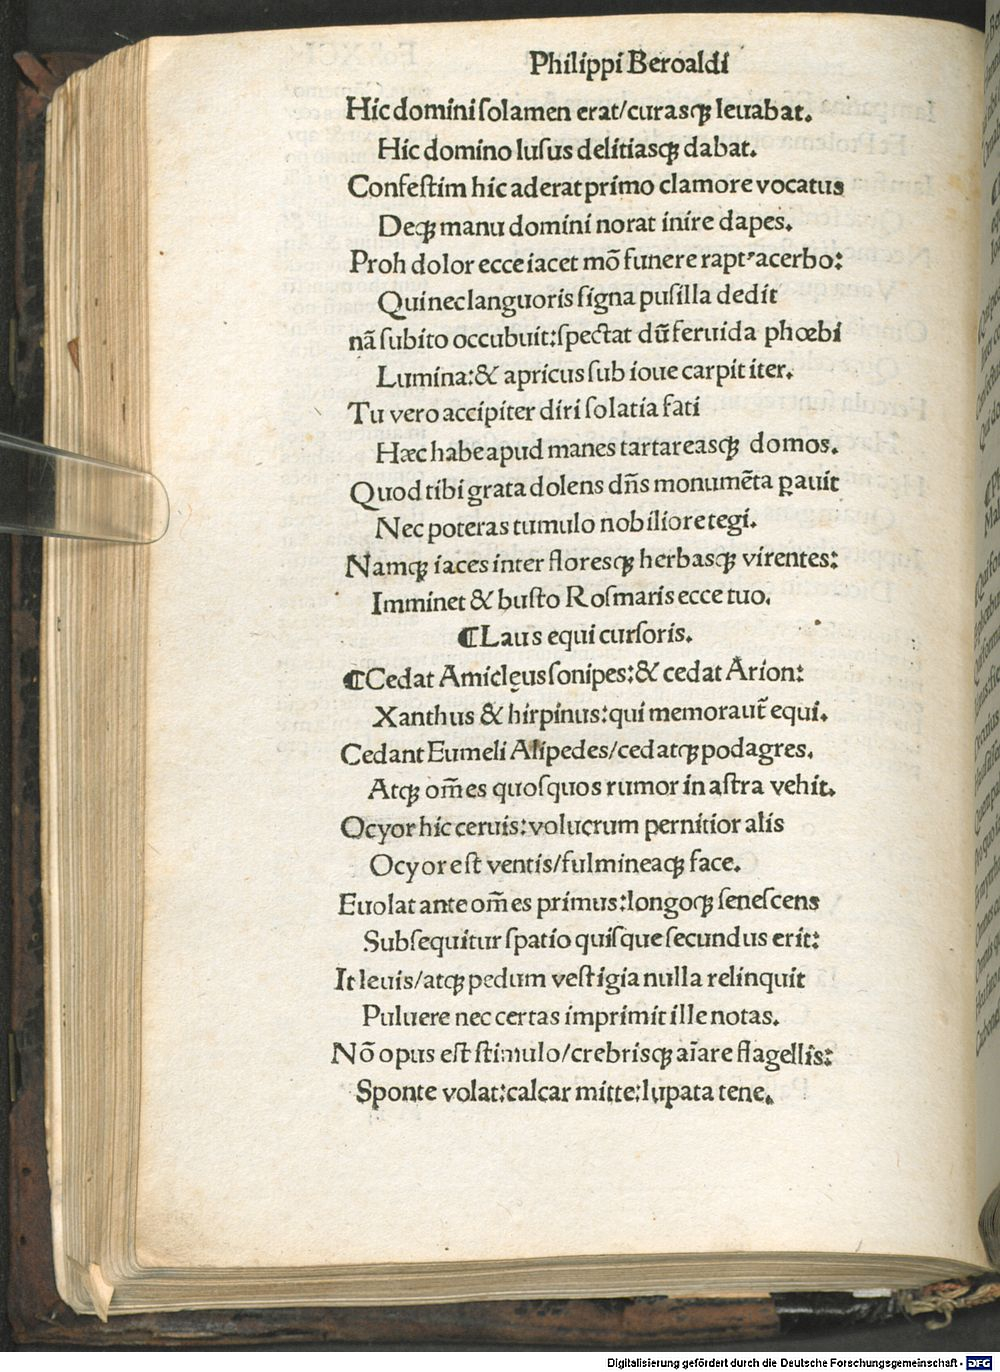 Philippi Beroaldi
Hic domini ſolamen erat/curasqꝫ leuabat.
Hic domino luſus delitiasqꝫ dabat.
Confeſtim hic aderat primo clamore vocatus
Deqꝫ manu domini norat inire dapes.
Proh dolor ecce iacet mō funere raptꝰ acerbo:
Qui nec languoris ſigna puſilla dedit
nā ſubito occubuit:ſpectat dū feruida phœbi
Lumina:& apricus ſub ioue carpit iter.
Tu vero accipiter diri ſolatia fati
Hæc habe apud manes tartareasqꝫ domos.
Quod tibi grata dolens dn̄s monumēta ꝑauit
Nec poteras tumulo nobiliore tegi.
Namqꝫ iaces inter floresqꝫ herbasqꝫ virentes:
Imminet & buſto Roſmaris ecce tuo.
¶Laus equi curſoris.
¶Cedat Amicleus ſonipes:& cedat Arion:
Xanthus & hirpinus:qui memoraut̄ equi.
Cedant Eumeli Alipedes/cedatqꝫ podagres.
Atqꝫ om̄es quoſquos rumor in aſtra vehit.
Ocyor hic ceruis:volucrum pernitior alis
Ocyor eſt ventis/fulmineaqꝫ face.
Euolat ante om̄es primus:longoqꝫ ſeneſcens
Subſequitur ſpatio quiſque ſecundus erit:
It leuis/atqꝫ pedum veſtigia nulla relinquit
Puluere nec certas imprimit ille notas.
Nō opus eſt ſtimulo/crebrisqꝫ aīare flagellis:
Sponte volat:calcar mitte:lupata tene.
Digitalisierung gefördert durch die Deutsche Forschungsgemeinschaft - DFG